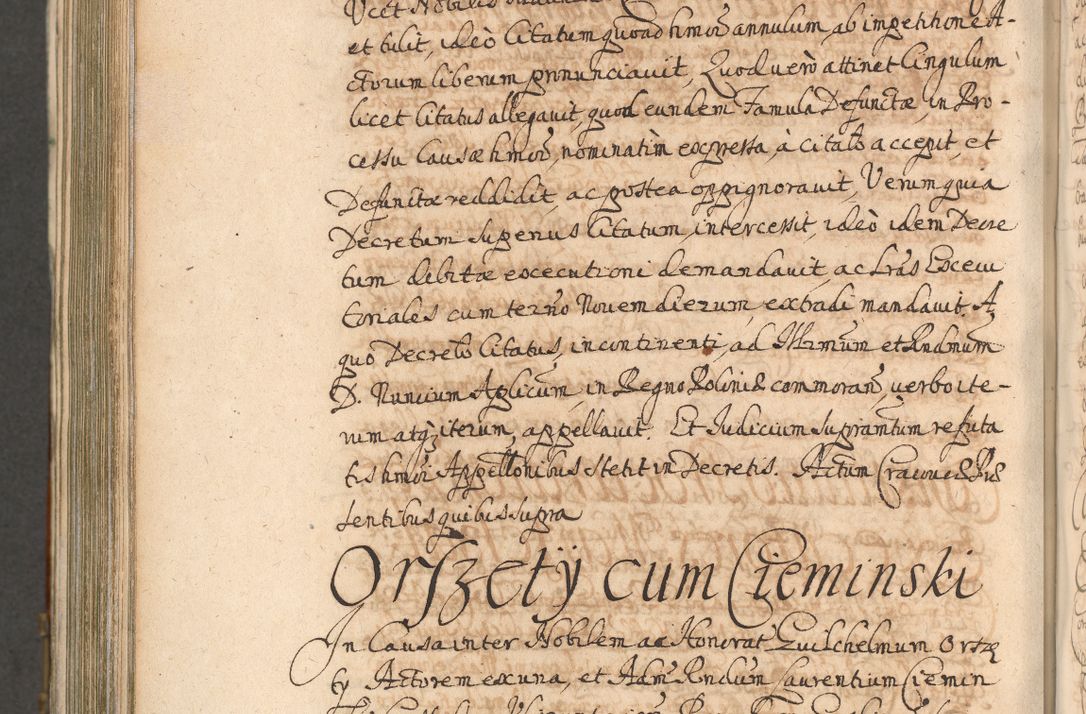 et tulit, ideò Citatum quoad hmoi annulum, ab impetitione A-
ctorum liberum pronunciavit, Quod verò attinet Cingulum
licet Citatus allegavit, quod eundem Famula Defunctæ, in Pro-
cessu Causæ hmoi, nominatim expressa, à citato accepit, et
Defunctæ reddidit, ac postea oppignoravit, Verum quia
Decretum superius Citatum, intercessit, ideò idem Decre
tum debitæ executioni demandavit, ac Lrãs Execu
toriales cum termo Novem dierum, extradi mandavit. A
quo Decreto Citatus, incontinenti, ad Illrmum et Rndmum
D. Nuncium Aplicum, in Regno Poliniæ commoran, verbo ite-
rum atqz iterum, appellavit. Et Iudicium supramtum refuta
tis hmoi Appellonibus stetit in Decretis. Actum Cracoviæ Præ
sentibus quibus supra
Orszety cum Cieminski
In Causa inter Nobilem ac Honorat Guilchelmum Orsze
ty Actorem ex una, et Adm Rndum Laurentium Ciemin